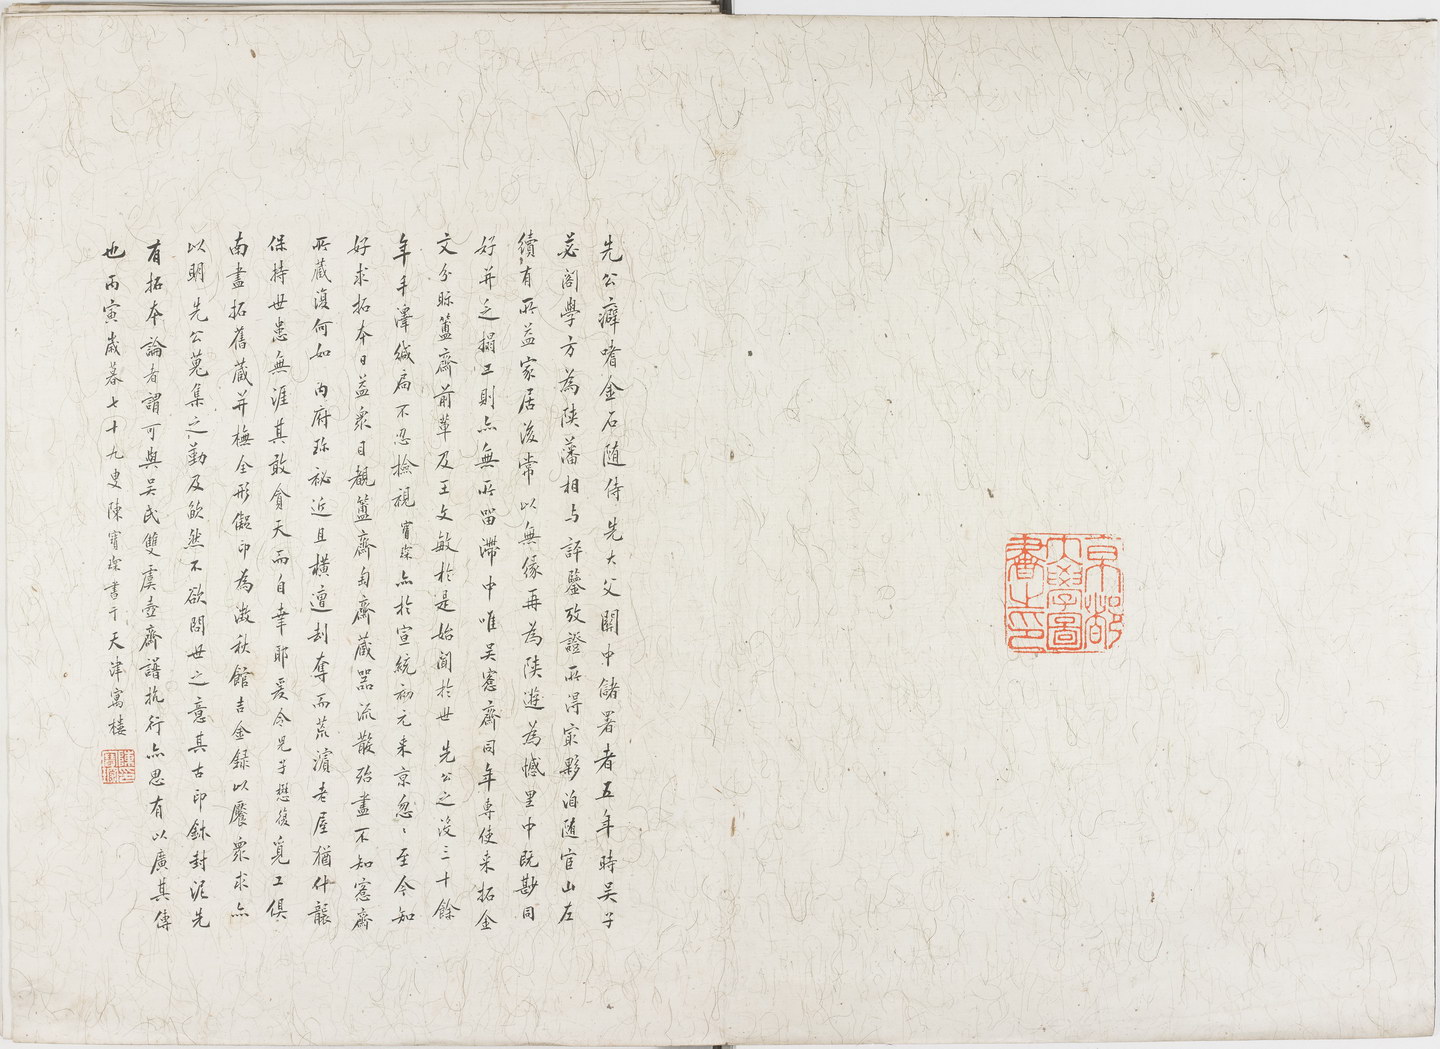 京都帝
大學圖
書之印
先公癖嗜金石隨侍先大父關中儲署者五年時吳子
苾閣學方為陝藩相与評鑒攷證所得寖夥洎隨宦山左
續有所益家居後常以無緣再為陝遊為憾里中既尠同
好并乏搨工則亦無所留滯中唯吳愙齋同年專使来拓金
文分貽簠齋前輩及王文敏於是始聞於世先公之沒三十餘
年手澤緘扃不忍撿視寶琛亦於宣統初元来京忽〻至今知
好求拓本日益衆目覩簠齋匋齋藏器流散殆盡不知愙齋
所藏復何如內府珍祕近且橫遭刦奪而荒濵老屋猶什襲
保持世患無涯其敢貪天而自幸耶爰令兒子懋復覓工俱
南盡拓舊藏并橅全形儗印為澂秋館吉金錄以饜衆求亦
以明先公蒐集之勤及欿然不欲問世之意其古印鉥封泥先
有拓本論者謂可與吳氏雙虞壺齋譜抗行亦思有以廣其傳
也丙寅歲暮七十九叟陳寶琛書于天津寓樓